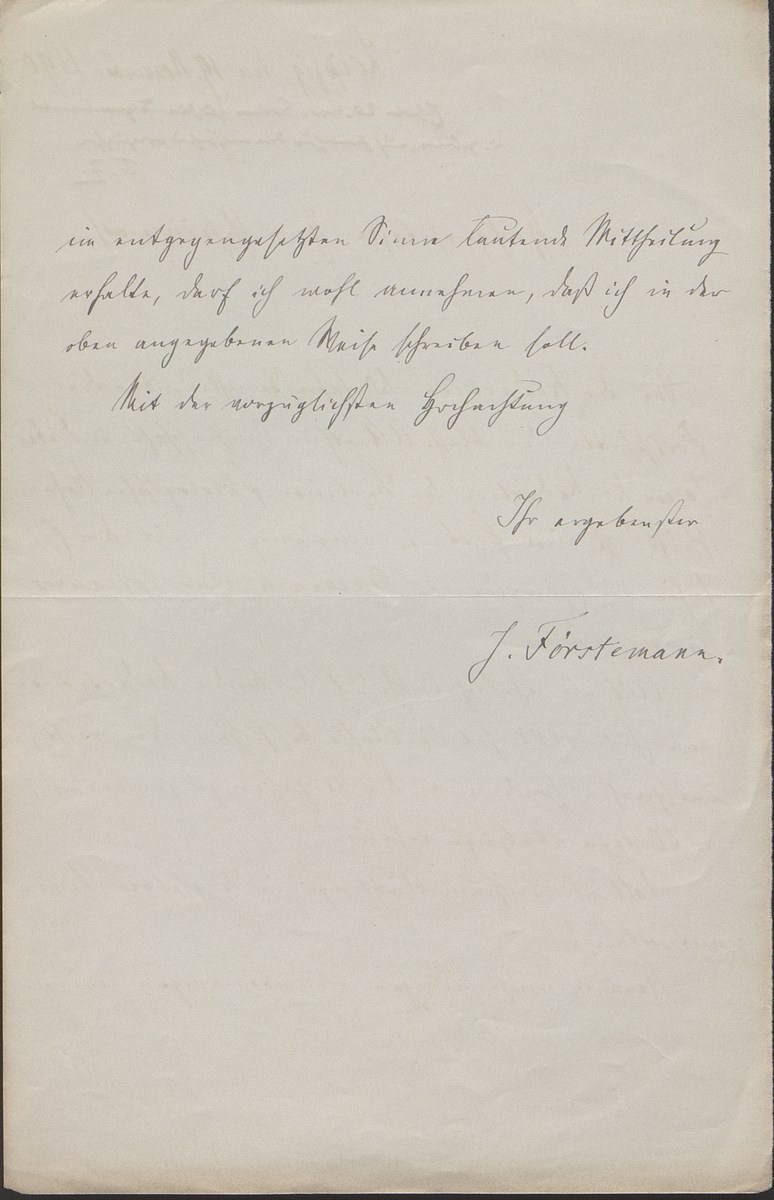 im entgegengesetzten Sinne lautende Mittheilung
erhalte, darf ich wohl annehmen, daß ich in der
oben angegebenen Weise schreiben soll.
Mit der vorzüglichsten Hochachtung
Ihr ergebenster
J. Förstemann.